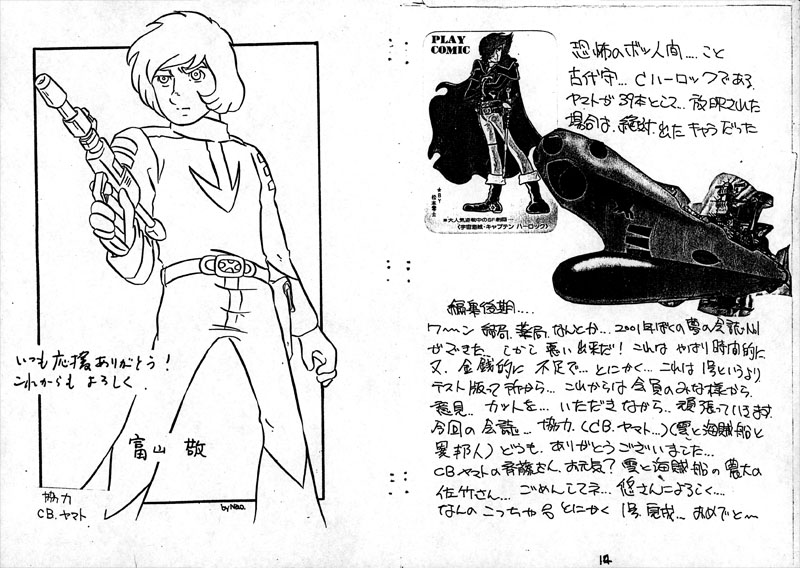 いつも応援ありがとう!
これからもよろしく
富山 敬
協力
CB.ヤマト
by Nao.
PLAY
COMIC
★BY
松本零士
★大人気連載中のSF劇画…
《宇宙海賊・キャプテン ハーロック》
恐怖のボツ人間.... こと
古代守... Cハーロックである
ヤマトが39本として... 放映された
場合は、絶対、出たキャラだった
編集後期....
ワーン 結局、薬局、なんとか... 2001年ぼくの夢の会誌No1
ができた... しかし 悪い出来だ! これは やはり時間的に
又、金銭的に 不足で... とにかく... これは 1号というより
テスト版って所から... これからは 会員のみな様から
意見、カットを... いただきながら、頑張っていきます
今回の会誌... 協力、(CB.ヤマト...)(雲と海賊船と
異邦人) どうも、ありがとうございました...
CBヤマトの斉藤さん、お元気? 雲と海賊船の農大の
佐竹さん... ごめんしてネ... 悠さんによろしく...
なんのこっちゃ号 とにかく 1号、完成... おめでと〜
14